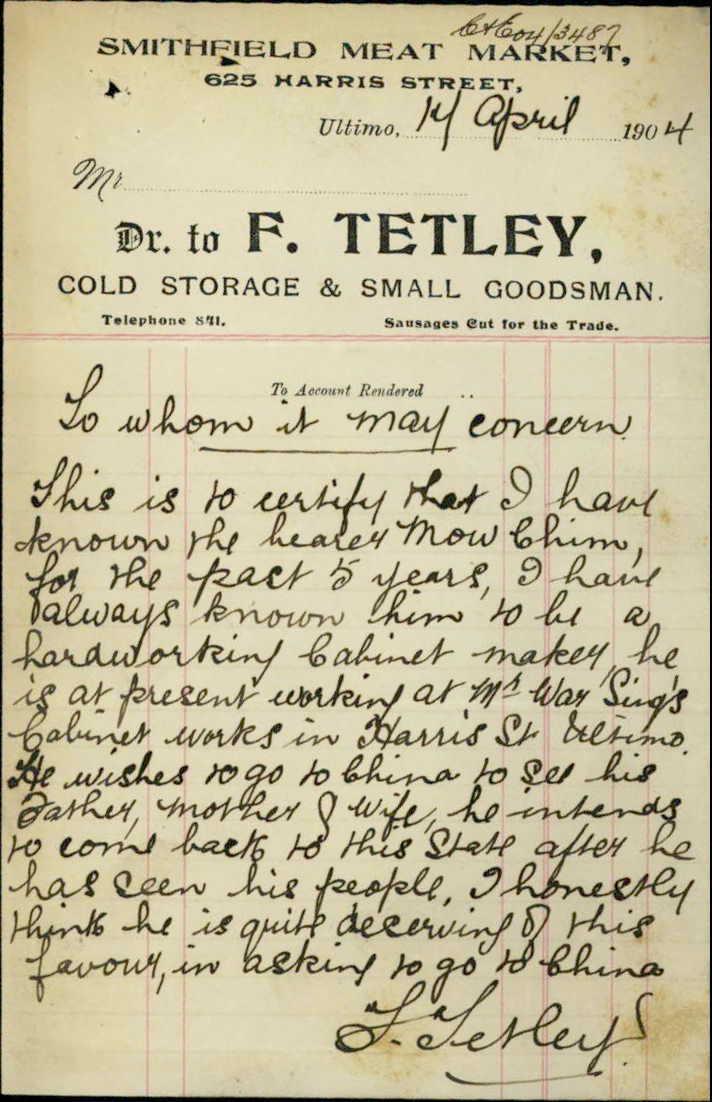 C+E 04/3487
SMITHFIELD MEAT MARKET,
625 HARRIS STREET,
Ultimo, 14 April 1904
Mr
Dr. to F. TETLEY,
COLD STORAGE & SMALL GOODSMAN.
Telephone 841.
Sausages Cut for the Trade.
To Account Rendered
To whom it may concern.
This is to certify that I have
known the bearer Mow Chim,
for the past 5 years, I have
always known him to be a
hardworking Cabinet maker, he
is at present working at Mr War Sing's
Cabinet works in Harris St Ultimo.
He wishes to go to China to see his
Father, mother & wife, he intends
to come back to this State after he
has seen his people, I honestly
think he is quite deserving of this
favour, in asking to go to China
F. Tetley.